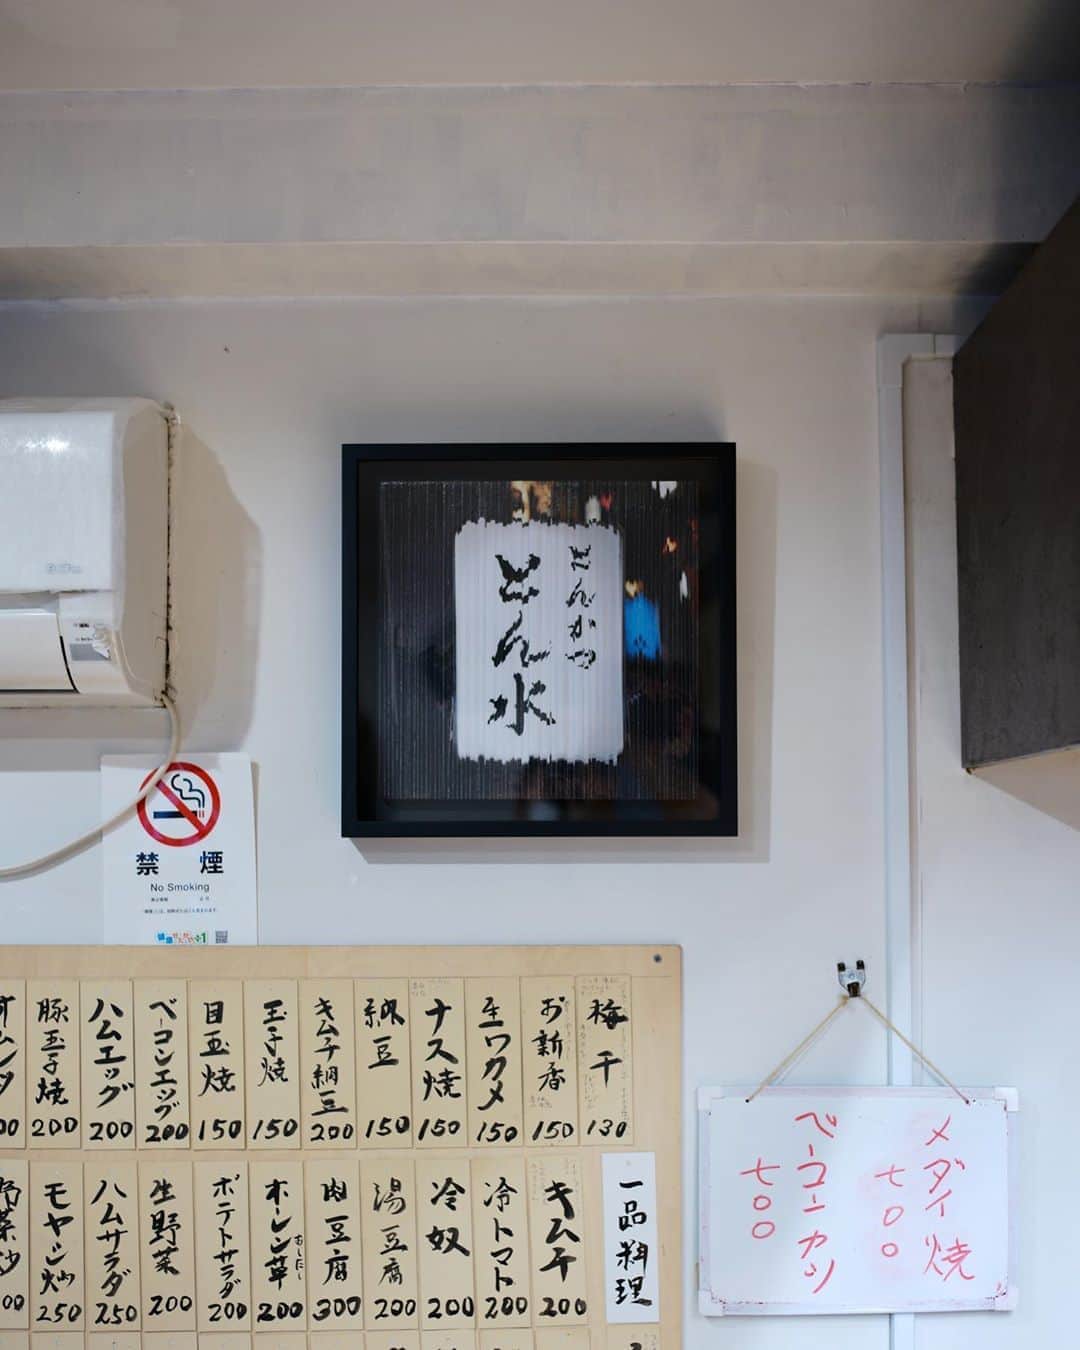 とんかつ
とん水
禁煙
No Smoking
梅干
130
お新香
150
生ワカメ
150
ナス焼
150
納豆
150
キムチ納豆
200
玉子焼
150
目玉焼
150
ベーコンエッグ
200
ハムエッグ
200
豚玉子焼
200
一品料理
キムチ
200
冷トマト
200
冷奴
200
湯豆腐
200
肉豆腐
300
ホーレン草
おしたし
200
ポテトサラダ
200
生野菜
200
ハムサラダ
250
モヤシ炒
250
野菜炒
メダイ焼
七〇〇
ベーコンカツ
七〇〇